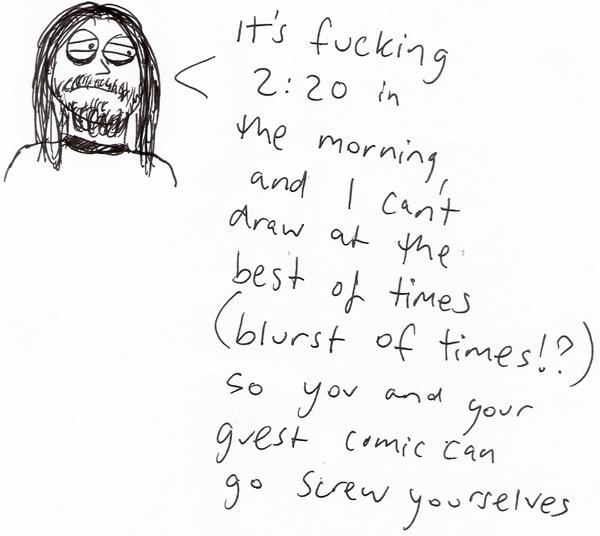 It's fucking
2:20 in
the morning,
and I can't
draw at the
best of times
(blurst of times!?)
so you and your
guest comic can
go screw yourselves